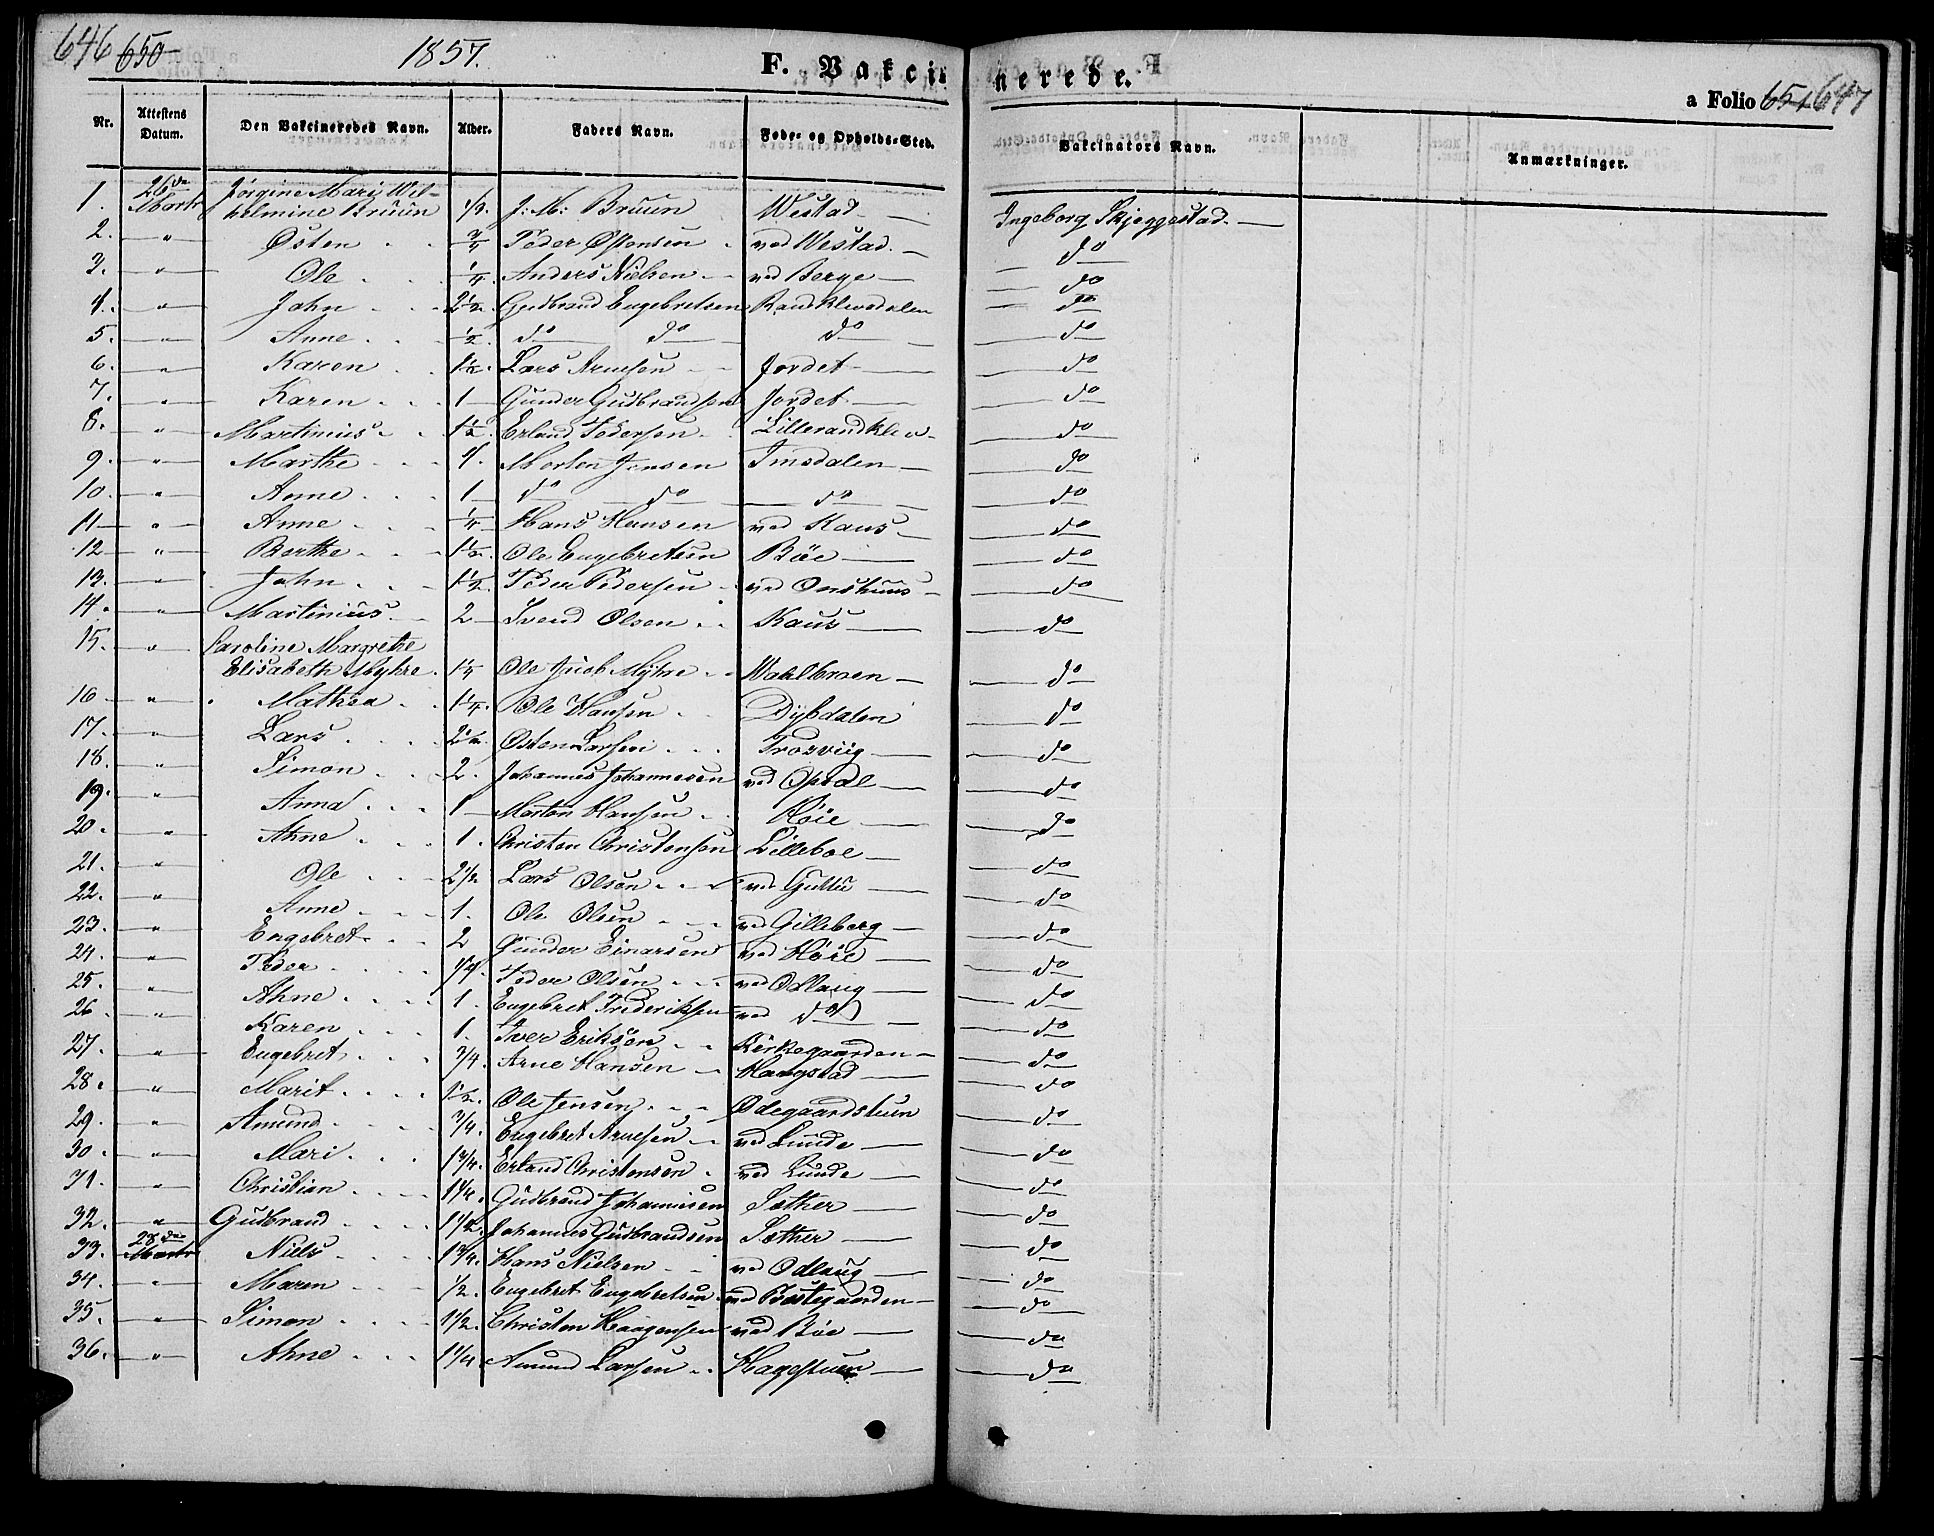 646 650 1857. F. Vakci- nerede. a Folio 651 647
Nr. Attestens Datum. Den Vakcineredes Navn. Alder. Faders Navn. Føde- og Opholds-Sted. Vakcinators Navn. Anmærkninger.
1. 26de Marts Jørgine Mari Wil-
helmine Bruun 1/2. J: M: Bruun Westad Ingeborg Skjeggestad.
2. " Østen 3/4 Peder Østensen ved Westad do
3. " Ole 1/4 Anders Nielsen ved Berge do
4. " John 2 1/2. Gudbrand Engebretsen Randklevdalen do
5. " Anne 1/2. do do do do
6. " Karen 1 1/2. Lars Arnesen Jordet do
7. " Karen 1 Gunder Gudbrandsen Jordet do
8. " Martinius 1 1/2. Erland Pedersen Lillerandklev do
9. " Marthe 4. Morten Jensen Imsdalen do
10. " Anne 1 do do do do
11 " Anne 1/4 Hans Hansen ved Kaus do
12 " Berthe 1 1/2. Ole Engebretsen Böe do
13. " John 1 1/2. Peder Pedersen ved Onshuus do
14. " Martinius 2 Svend Olsen Kaus do
15. " Caroline Margrethe
Elisabeth Myhre. 1 1/4 Ole Jacob Myhre Wahlbroen do
16 " Mathea 1 1/4. Ole Hansen Dybdalen do
17. " Lars 2 1/2. Østen Larsen Trosviig do
18. " Simon 2. Johannes Johannesen ved Opsal do
19. " Anna 1 Morten Hansen Høie do
20. " Ahne 1. Christen Christensen Lilleboe do
21. " Ole 2 1/2. Lars Olsen ved Guttu do
22. " Anne 1. Ole Olsen ved Gilleberg do
23. " Engebret 2 Gunder Einarsen ved Høie do
24. " Peder 1/4. Peder Olsen ved Odlaug do
25. " Ahne 1. Engebret Frederiksen ved do do
26. " Karen 1. Iver Eriksen Kirkegaarden do
27. " Engebret 3/4. Arne Hansen Haugstad do
28. " Marit 1 1/2. Ole Jensen Ødegaardstuen do
29. " Amund 3/4. Engebret Arnesen ved Lunde do
30. " Mari 1 3/4. Erland Christensen ved Lunde do
31. " Christian 1 1/4. Gudbrand Johannesen Sether do
32. " Gudbrand 1 1/2. Johannes Gudbrandsen Sether do
33. 28de Marts Niels 1 3/4. Hans Nielsen ved Odlaug do
34. " Maren 1/2. Engebret Engebretsen ved Prestegaarden do
35. " Simon 1 1/2. Christen Haagensen ved Böe do
36. " Ahne 1 1/4 Amund Larsen Hagestuen do